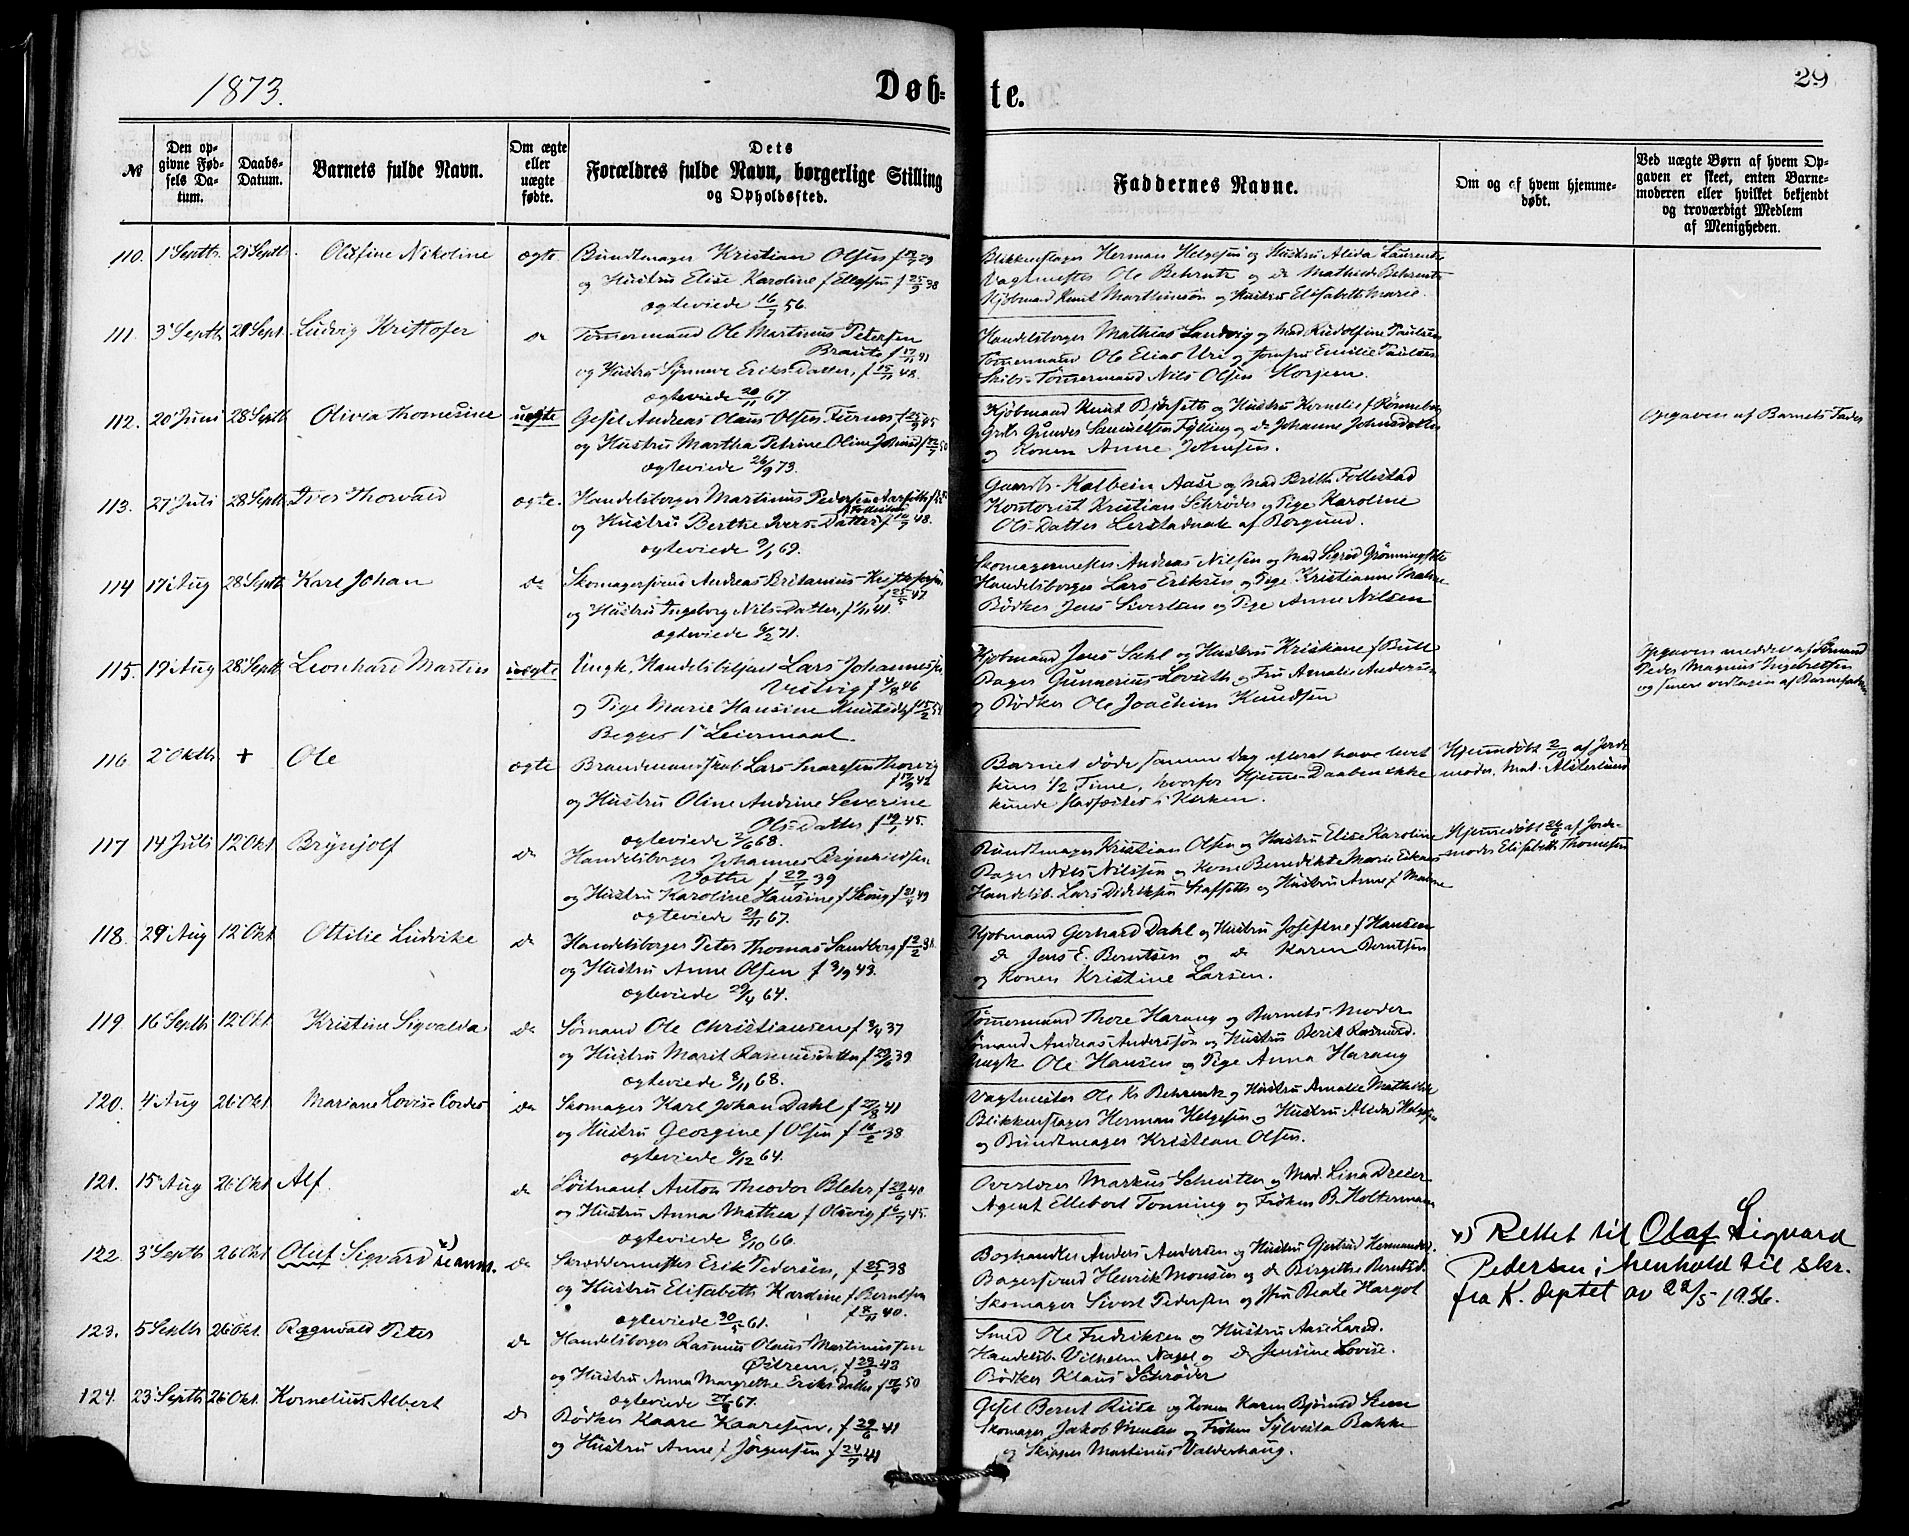 1873.
Døb-
te.
29
№
Den op-
givne Fød-
sels Da-
tum.
Daabs-
Datum.
Barnets fulde Navn.
Om ægte
eller
uægte
fødte.
Dets
Forældres fulde Navn, borgerlige Stilling
og Opholdssted.
Faddernes Navne.
Om og af hvem hjemme-
døbt.
Ved uægte Børn af hvem Op-
gaven er skeet, enten Barne-
moderen eller hvilket bekjendt
og troværdigt Medlem
af Menigheden.
110. 1' Septb. 21 Septb. Olufine Nikoline ægte
Bundtmager Kristian Olsen f
og Hustru Elise Karoline f Ellefsen f 25/9 38
ægteviede 16/7 56.
Blikkenslager Herman Helgesen og Hustru Alida Laurentse
Vagtmester Ole Behrentz og do Mathilde Behrentz
Kjøbmand Knut Martinson og Hustru Elisabeth Marie.
111. 3' Septb 21 Sept. Ludvig Kristofer do
Tømermand Ole Martinus Petersen
Braute f 17/11 41
og Hustru Synneve Eriks Datter, f 15/11 48.
ægteviede 20/11 67
Handelsborger Mathias Landvig og Mad Rudolfine Paulsen
Tømermand Ole Elias Uri og Jomfru Emilie Paulsen
Skibs-Tømermand Nils Olsen Korsen.
112. 20' Juni 28 Septb Olivia Thomesine uægte
Gesel Andreas Olaus Olsen f 25/9 45
og Hustru Martha Petrine Oline
ægteviede 26/9 73.
Kjøbmand Knut Bjørseth og Hustru Kornelie f Rønneberg
Grds Gunder Samuelsen Fylling og do Johanne Johnsdatter
og Konen Anne Johnsen.
Opgaven af Barnets Fader
113. 27' Juli 28 Septb. Iver Thorvald ægte
Handelsborger Martinus Pedersen Aarseth
og Hustru Berthe Ivers-Datter f 48.
ægteviede 9/1 69.
Gaards-Kolbein Aase og Mad Brith Follestad
Kontorist Kristian Schrøder og Pige Karoline
Ols-Datter Lerstadnak af Borgund.
114 17' Aug 28 Septb Karl Johan do
Skomagersvend Andreas Britanius Kristofersen
f 25/5 47
og Hustru Ingeborg Nils-Datter, f 41.
ægteviede 6/2 71.
Skomagermester Andreas Nilsen og Mad Sigrid Grønningsæter
Handelsborger Lars Eriksen og Pige Kristianne
Bødker Jens Sivertsen og Pige Anne Nilsen
115. 19 Aug 28 Septb Leonhard Martin uægte
Ungk. Handelsbetjent Lars Johannesen
Vestvig f 4/8 46
og Pige Marie Hansine Knutsdtr f 15/2 54
Begges 1' Leiermaal.
Kjøbmand Jens Dahl og Hustru Kristiane f Bull
Bager Gunnerius Lovseth og Fru Amalie Andersen
og Bødker Ole Joachim Knudsen
Opgaven meddelt af Sømand
Peder Magnus Ingebretsen
og senere vedtagen af Barnefaderen
116 2' Oktb + Ole ægte
Brandmandskab Lars Snaresen Thorvig
f 17/9 42
og Hustru Oline Andrine Severine
Ols-Datter f 19/1 45.
ægteviede 7/6 68.
Barnet døde samme Dag efter at have levet
kun 1/2 Time, hvorfor Hjemme-Daaben ikke
kunde stadfæstes i Kirken.
Hjemmedøbt 2/10 af Jorde-
moder, Mad. Alsterlund
117 14 Juli 12 Okt Brynjolf do
Handelsborger Johannes Brynildsen
Vatne f 29/7 39
og Hustru Karoline Hansine f f 21/9 43
ægteviede 24/11 67.
Bundtmager Kristian Olsen og Hustru Elise Karoline
Bager Nils Nilssen og Kone Benedikte Marie Eiknes
Handelsb. Lars Didriksen Stafseth og Hustru Anne f Malene
Hjemmedøbt 26/6 af Jorde-
moder Elisabeth Thomesen
118. 29' Aug 12 Okt Ottilie Ludvike do
Handelsborger Peter Thomas Sandberg f 2/2 31.
og Hustru Anne Olsen f 8/9 43.
ægteviede 29/4 64.
Kjøbmand Gerhard Dahl og Hustru Josefine f Hansen
do Jens E. Berntsen og do Karen Berntsen
og Konen Kristine Larsen.
119. 16 Septb 12 Okt Kristine Sigvalda do
Sømand Ole Christiansen f 8/4 37
og Hustru Marit Rasmusdatter f 29/6 39
ægteviede 8/11 68.
Tømermand Thore Harang og Barnets Moder
Sømand Andreas Anderssøn og Hustru Berit Rasmusd.
Ungk Ole Hansen og Pige Anna Harang
120. 4 Aug 26 Okt. Mariane Lovise Cordes do
Skomager Karl Johan Dahl f 27/8 41
og Hustru Georgine f Olsen f 16/2 38
ægteviede 6/12 64.
Vagtmester Ole Kr Behrentz og Hustru Amalie Mathilde
Blikkenslager Herman Helgesen og Hustru Alida Helgesen
og Bundtmager Kristian Olsen.
121. 15' Aug 26 Okt Alf do
Løitnant Anton Theodor Blehr f 29/6 40
og Hustru Anna Mathea f Olsvig f 6/7 45.
ægteviede 8/10 66.
Overlærer Markus Schnitler og Mad. Lina Dreder
Agent Ellebert Tonning og Frøken B. Holtermann
122. 3' Septb 26 Okt. Oluf Sigvard x) se anm. do
Skreddermester Erik Pedersen, f 25/1 38
og Hustru Elisabeth Kardine f Berntsen
f 7/11 40.
ægteviede 30/5 61.
Boghandler Anders Andersen og Hustru Gjertrud Hermandsd.
Bagersvend Henrik Monsen og do Birgithe Berntsd.
Skomager Sivert Pedersen og Fru Beate Hargot
x) Rettet til Olaf Sigvard
Pedersen i henhold til skr.
fra K. deptet av 22/5 1936.
123. 5 Septb 26 Okt. Ragnvald Peter do
Handelsborger Rasmus Olaus Martinussen
Østrem, f 29/9 43
og Hustru Anna Margrethe Eriks datter f 50
ægteviede 67.
Smed Ole Fredriksen og Hustru Aase Larsd.
Handelsb. Vilhelm Nagel og do Jensine Lovise.
Bødker Klaus Schrøder
124. 23' Septb 26 Okt. Kornelius Albert do
Bødker Kaare Kaaresen, f 29/6 41
og Hustru Anne f Jørgensen f 24/7 41
Gesel Bernt Ruud og Konen Karen
Skomager Jakob og Frøken Sylvesta Bakke
og Skipper Martinus Valderhaug.